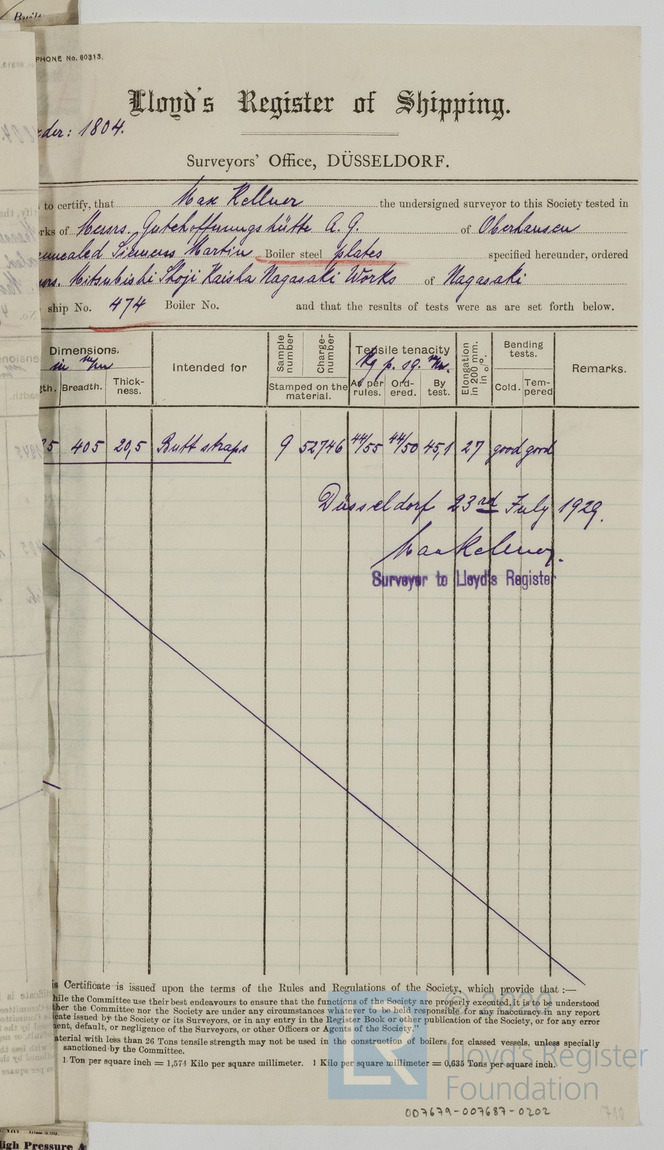 Built
PHONE No. 80313.
Lloyd's Register of Shipping.
der: 1804.
Surveyors' Office, DÜSSELDORF.
to certify, that Max Kellner the undersigned surveyor to this Society tested in
rks of Messrs. Gutehoffnungshütte A. G. of Oberhausen
annealed Siemens Martin Boiler steel plates specified hereunder, ordered
Mitsubishi Shoji Kaisha Nagasaki Works of Nagasaki
ship No. 474 Boiler No. and that the results of tests were as are set forth below.
Dimensions. in m/m
gth. Breadth. Thickness.
Intended for
Sample number
Charge-number
Stamped on the material.
Tensile tenacity Kg p. sq. m/m.
As per rules. Ordered. By test.
Elongation in 200 mm. in %.
Bending tests.
Cold. Tempered
Remarks.
5 405 20,5 Butt straps 9 52746 44/55 44/50 45,1 27 good good
Düsseldorf 23rd July 1929.
Max Kellner.
Surveyor to Lloyd's Register
s Certificate is issued upon the terms of the Rules and Regulations of the Society, which provide that :—
hile the Committee use their best endeavours to ensure that the functions of the Society are properly executed, it is to be understood
ther the Committee nor the Society are under any circumstances whatever to be held responsible for any inaccuracy in any report
cate issued by the Society or its Surveyors, or in any entry in the Register Book or other publication of the Society, or for any error
ent, default, or negligence of the Surveyors, or other Officers or Agents of the Society."
aterial with less than 26 Tons tensile strength may not be used in the construction of boilers for classed vessels, unless specially
sanctioned by the Committee.
1 Ton per square inch = 1,574 Kilo per square millimeter. 1 Kilo per square millimeter = 0,635 Tons per square inch.
© 2020
LR
Lloyd's Register
Foundation
007679-007687-0202
High Pressure